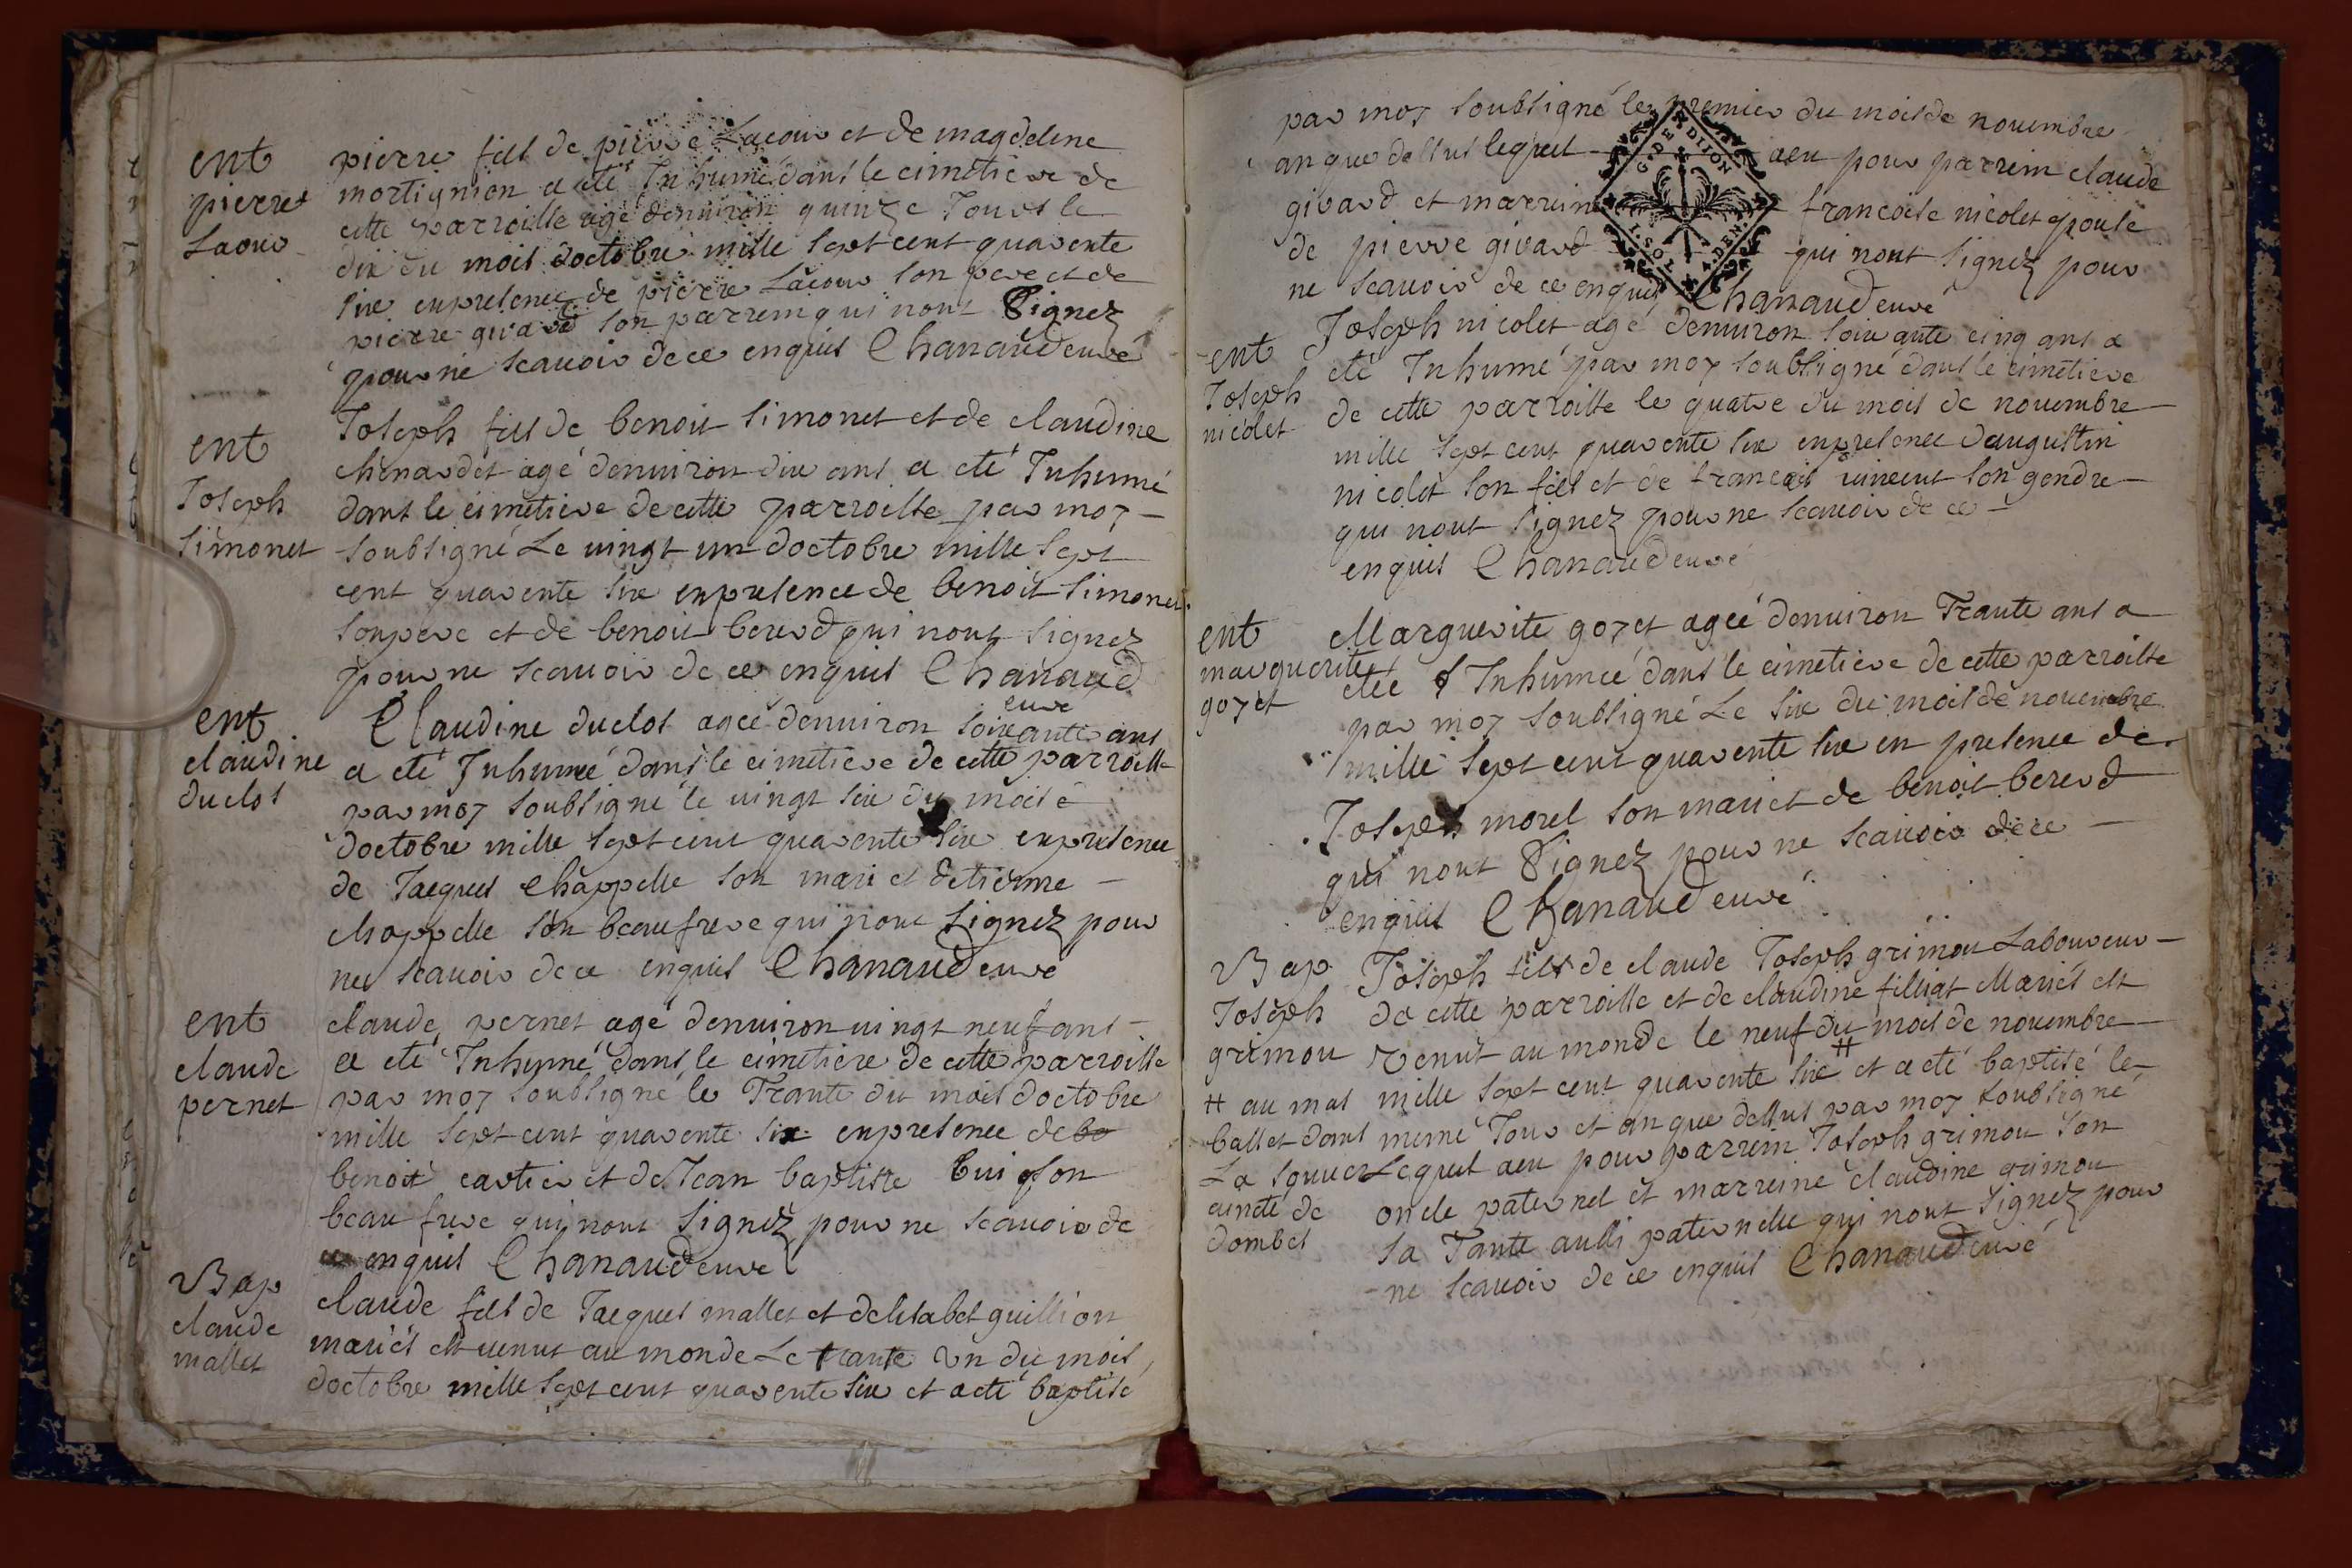 ent
pierre
Lacour
pierre fils de pierre Lacour et de magdelene
mortignion a eté Inhumé dans le cimetiere de
cette parroisse agé denuiron quinze Jours le
dix du mois doctobre mille sept cent quarente
six enpresence de pierre Lacour son pere et de
pierre girard son parrein qui nont Signez
pour ne scauoir de ce enquis Chanaud curé
ent
Joseph
simonet
Joseph fils de benoit simonet et de claudine
chenardet agé denuiron dix ans a eté Inhumé
dans le cimetiere de cette parroisse par moy
soubsigné Le uingt un doctobre mille sept
cent quarente six enpresence de benoit simonet
son pere et de benoit berard qui nont signez
pour ne scauoir de ce enquis Chanaud
curé
ent
claudine
duclos
Claudine duclos agée denuiron soixante ans
a eté Inhumé dans le cimetiere de cette parroisse
par moy soubsigné le uingt six du mois
doctobre mille sept cent quarente six enpresence
de Jacques chappelle son mari et detienne
chappelle son beaufrere qui nont signez pour
ne scauoir de ce enquis Chanaud curé
ent
claude
pernet
claude pernet agé denuiron uingt neuf ans
a eté Inhumé dans le cimetiere de cette parroisse
par moy soubsigné le Trante du mois doctobre
mille sept cent quarente six enpresence de be
benoit cartier et de Jean baptiste buis son
beau frere qui nont signez pour ne scauoir de
ce enquis Chanaud curé
Bap
claude
mallet
claude fils de Jacques mallet et delisabet guillion
mariés est uenut au monde Le trante un du mois
doctobre mille sept cent quarente six et a eté baptisé
par moy soubsigné le premier du mois de nouembre
an que dessus lequel a eu pour parrein claude
girard et marreine francoise nicolet epouse
de pierre girard qui nont signez pour
ne scauoir de ce enquis Chanaud curé
G. DE DIJON
I. SOL A. DEN.
ent
Joseph
nicolet
Joseph nicolet agé denuiron soixante cinq ans a
eté Inhumé par moy soubsigné dans le cimetiere
de cette parroisse le quatre du mois de nouembre
mille sept cent quarente six enpresence daugustin
nicolet son fils et de francois uincent son gendre
qui nont signez pour ne scauoir de ce
enquis Chanaud curé
ent
marguerite
goyet
Marguerite goyet agée denuiron Trante ans a
etée Inhumée dans le cimetiere de cette parroisse
par moy soubsigné Le six du mois de nouembre
mille sept cent quarente six en presence de
Joseph morel son mari et de benoit berard
qui nont Signez pour ne scauoir de ce
enquis Chanaud curé
Bap
Joseph
grimou
# au mas
ballet dans
La souuer
aineté de
dombes
Joseph fils de claude Joseph grimou Laboureur
de cette parroisse et de claudine filliat Mariés est
venut au monde le neuf du # mois de nouembre
mille sept cent quarente six et a eté baptisé le
meme Jour et an que dessus par moy soubsigné
Lequel a eu pour parrein Joseph grimou son
oncle paternel et marreine claudine grimou
sa Tante aussi paternelle qui nont signez pour
ne scauoir de ce enquis Chanaud curé